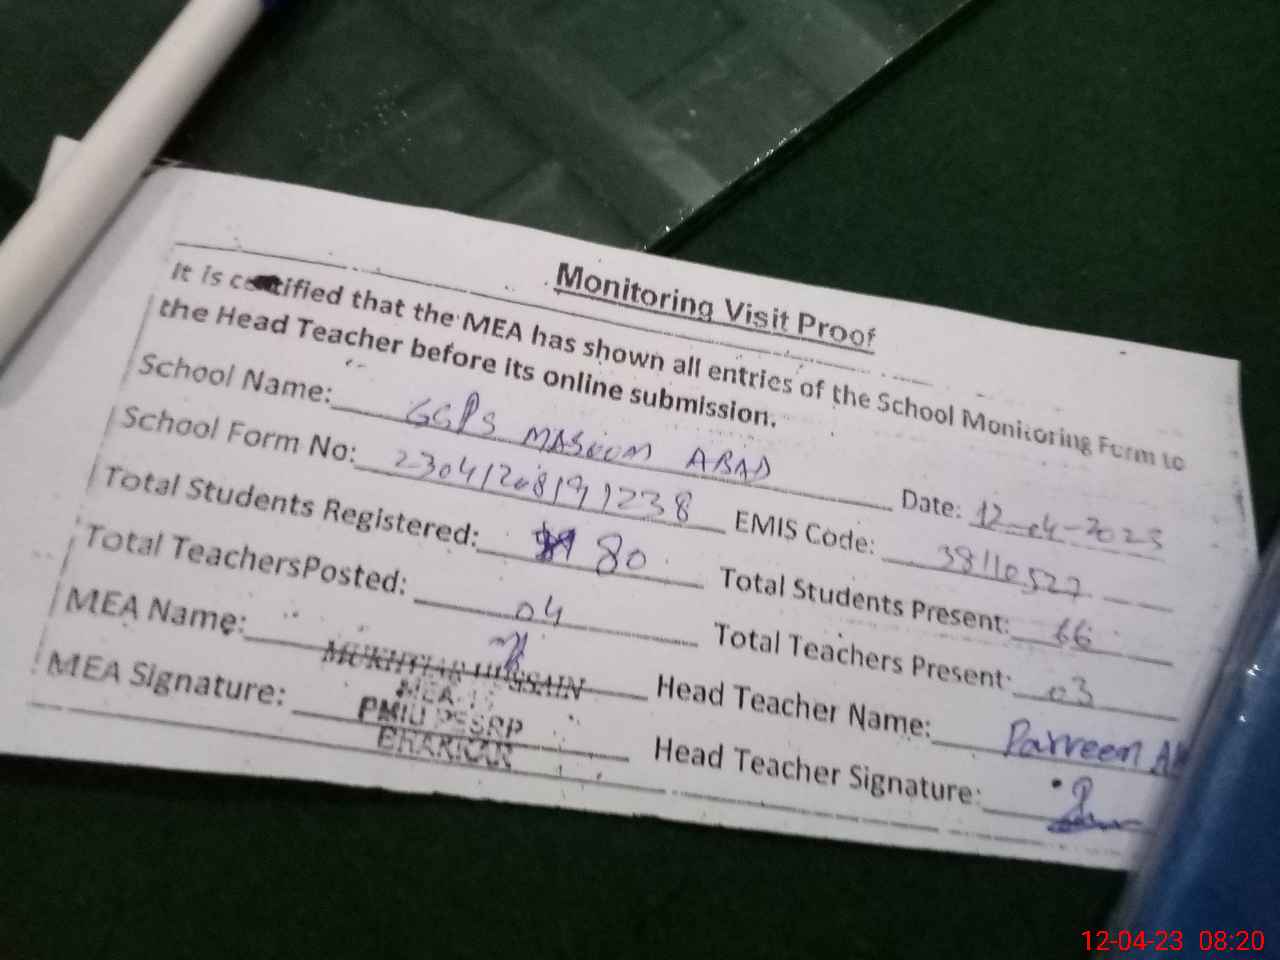 Monitoring Visit Proof
It is certified that the MEA has shown all entries of the School Monitoring Form to
the Head Teacher before its online submission.
School Name: GGPS MASOOM ABAD Date: 12-04-2023
School Form No: EMIS Code: 38110527
Total Students Registered: 80 Total Students Present: 66
Total TeachersPosted: 04 Total Teachers Present: 03
MEA Name: MUKHTIAR HUSSAIN Head Teacher Name: Parveen
MEA
MEA Signature: PMIU PESRP Head Teacher Signature:
BHAKKAR
12-04-23 08:20